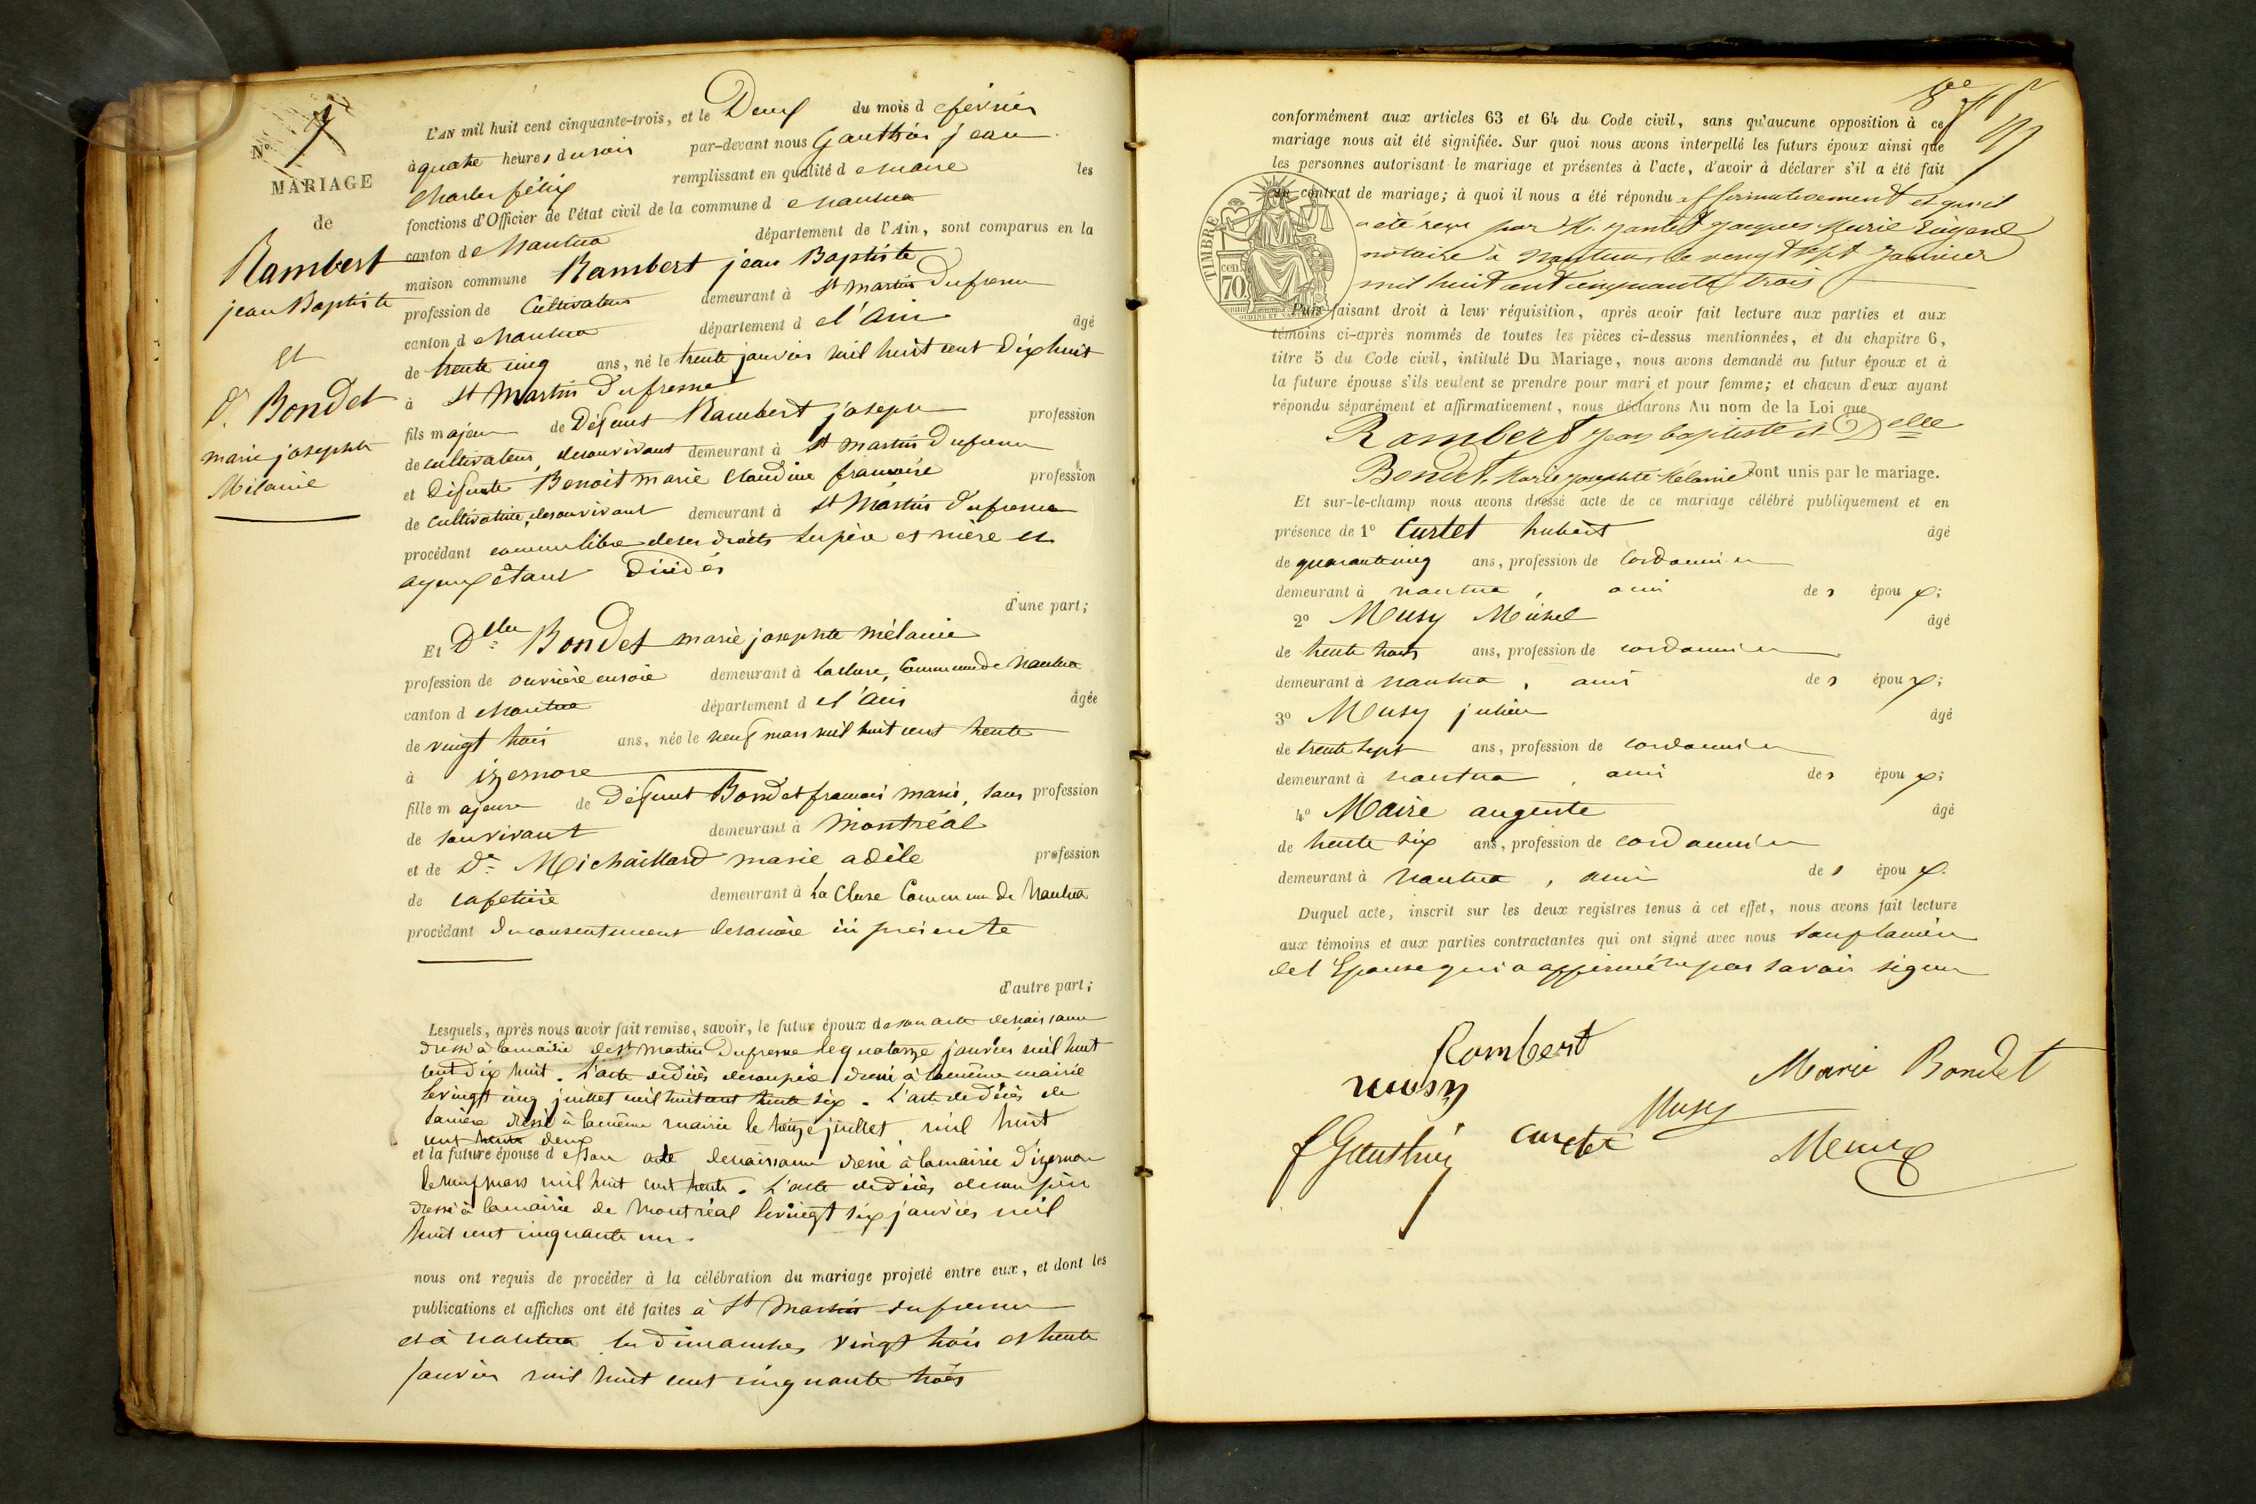 N° 7
MARIAGE
de
Rambert
jean Baptiste
et
De. Bondet
marie josephte
Mélanie
L'AN mil huit cent cinquante-trois, et le Deux du mois de février
à quatre heures du soir par-devant nous Gauthier jean
Charles félix remplissant en qualité de maire les
fonctions d'Officier de l'état civil de la commune de nantua
canton de Nantua département de l'Ain, sont comparus en la
maison commune Rambert jean Baptiste
profession de Cultivateur demeurant à St martin Dufresne
canton de Nantua département de l'ain âgé
de trente cinq ans, né le trente janvier mil huit cent Dix huit
à St Martin Dufresne
fils majeur de Défunt Rambert joseph profession
de cultivateur, desonvivant demeurant à St martin Dufresne
et Défunte Benoit marie Claudine françoise profession
de Cultivatrice, desonvivant demeurant à St Martin Dufresne
procédant comme libre de ses droits ses père et mère et
ayeux étant Décédés
d'une part;
Et Dlle Bondet marie josephte mélanie
profession de ouvrière en soie demeurant à La cluse, Commune de Nantua
canton de Nantua département de l'ain âgée
de vingt trois ans, née le neuf mars mil huit cent trente
à izernore
fille majeure de Défunt Bondet françois marie, sans profession
de son vivant demeurant à Montréal
et de De Michaillard marie adèle profession
de cafetière demeurant à La Cluse Commune De Nantua
procédant du consentement de sa mère ici présente
d'autre part;
Lesquels, après nous avoir fait remise, savoir, le futur époux de son acte de naissance
dressé à la mairie de St martin Dufresne le quatorze janvier mil huit
cent dix huit. L'acte de décès de son père dressé à la même mairie
le vingt cinq juillet mil huit cent trente six. L'acte de décès de
sa mère dressé à la même mairie le juillet mil huit
cent trente deux
et la future épouse de son acte de naissance dressé à la mairie d'izernore
le neuf mars mil huit cent trente. L'acte de décès de son père
dressé à la mairie de Montréal le vingt six janvier mil
huit cent cinquante un.
nous ont requis de procéder à la célébration du mariage projeté entre eux, et dont les
publications et affiches ont été faites à St Martin dufresne
et à nantua les dimanches vingt trois et trente
janvier mil huit cent cinquante trois
conformément aux articles 63 et 64 du Code civil, sans qu'aucune opposition à ce
mariage nous ait été signifiée. Sur quoi nous avons interpellé les futurs époux ainsi que
les personnes autorisant le mariage et présentes à l'acte, d'avoir à déclarer s'il a été fait
un contrat de mariage; à quoi il nous a été répondu affirmativement et qu'il
a été reçu par M. jantet jacques Marie Eugène
notaire à Nantua le vingt sept Janvier
mil huit cent cinquante trois
TIMBRE
70 cen.
Puis faisant droit à leur réquisition, après avoir fait lecture aux parties et aux
témoins ci-après nommés de toutes les pièces ci-dessus mentionnées, et du chapitre 6,
titre 5 du Code civil, intitulé Du Mariage, nous avons demandé au futur époux et à
la future épouse s'ils veulent se prendre pour mari et pour femme; et chacun d'eux ayant
répondu séparément et affirmativement, nous déclarons Au nom de la Loi que
Rambert jean baptiste et Delle
Bondet, Marie josephte Mélanie sont unis par le mariage.
Et sur-le-champ nous avons dressé acte de ce mariage célébré publiquement et en
présence de 1° Curtet hubert âgé
de quarante cinq ans, profession de Cordonnier
demeurant à nantua, ami des époux;
2° Musy Michel âgé
de trente trois ans, profession de cordonnier
demeurant à nantua, ami des époux;
3° Musy julien âgé
de trente sept ans, profession de cordonnier
demeurant à nantua, ami des époux;
4° Maire auguste âgé
de trente six ans, profession de cordonnier
demeurant à nantua, ami des époux.
Duquel acte, inscrit sur les deux registres tenus à cet effet, nous avons fait lecture
aux témoins et aux parties contractantes qui ont signé avec nous sauf la mère
de l'Epouse qui a affirmé ne pas savoir signer
Rambert
musy
Marie Bondet
Musy
f Gauthier
curtet